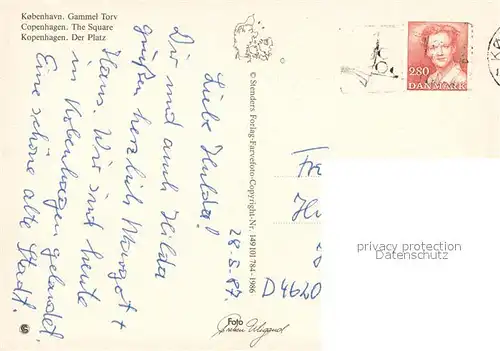 København. Gammel Torv
Copenhagen. The Square
Kopenhagen. Der Platz
28.5.87.
Liebe Hulda!
Dir und auch Hilda
grüßen herzlich Margot +
Hans. Wir sind heute
in Kobenhagen gelandet.
Eine schöne alte Stadt.
© Stenders Forlag-Farvefoto-Copyright-Nr. 149 101 784 - 1986
Foto
2.80
DANMARK
Fr
D 4620
privacy protection
AKPOOL.de